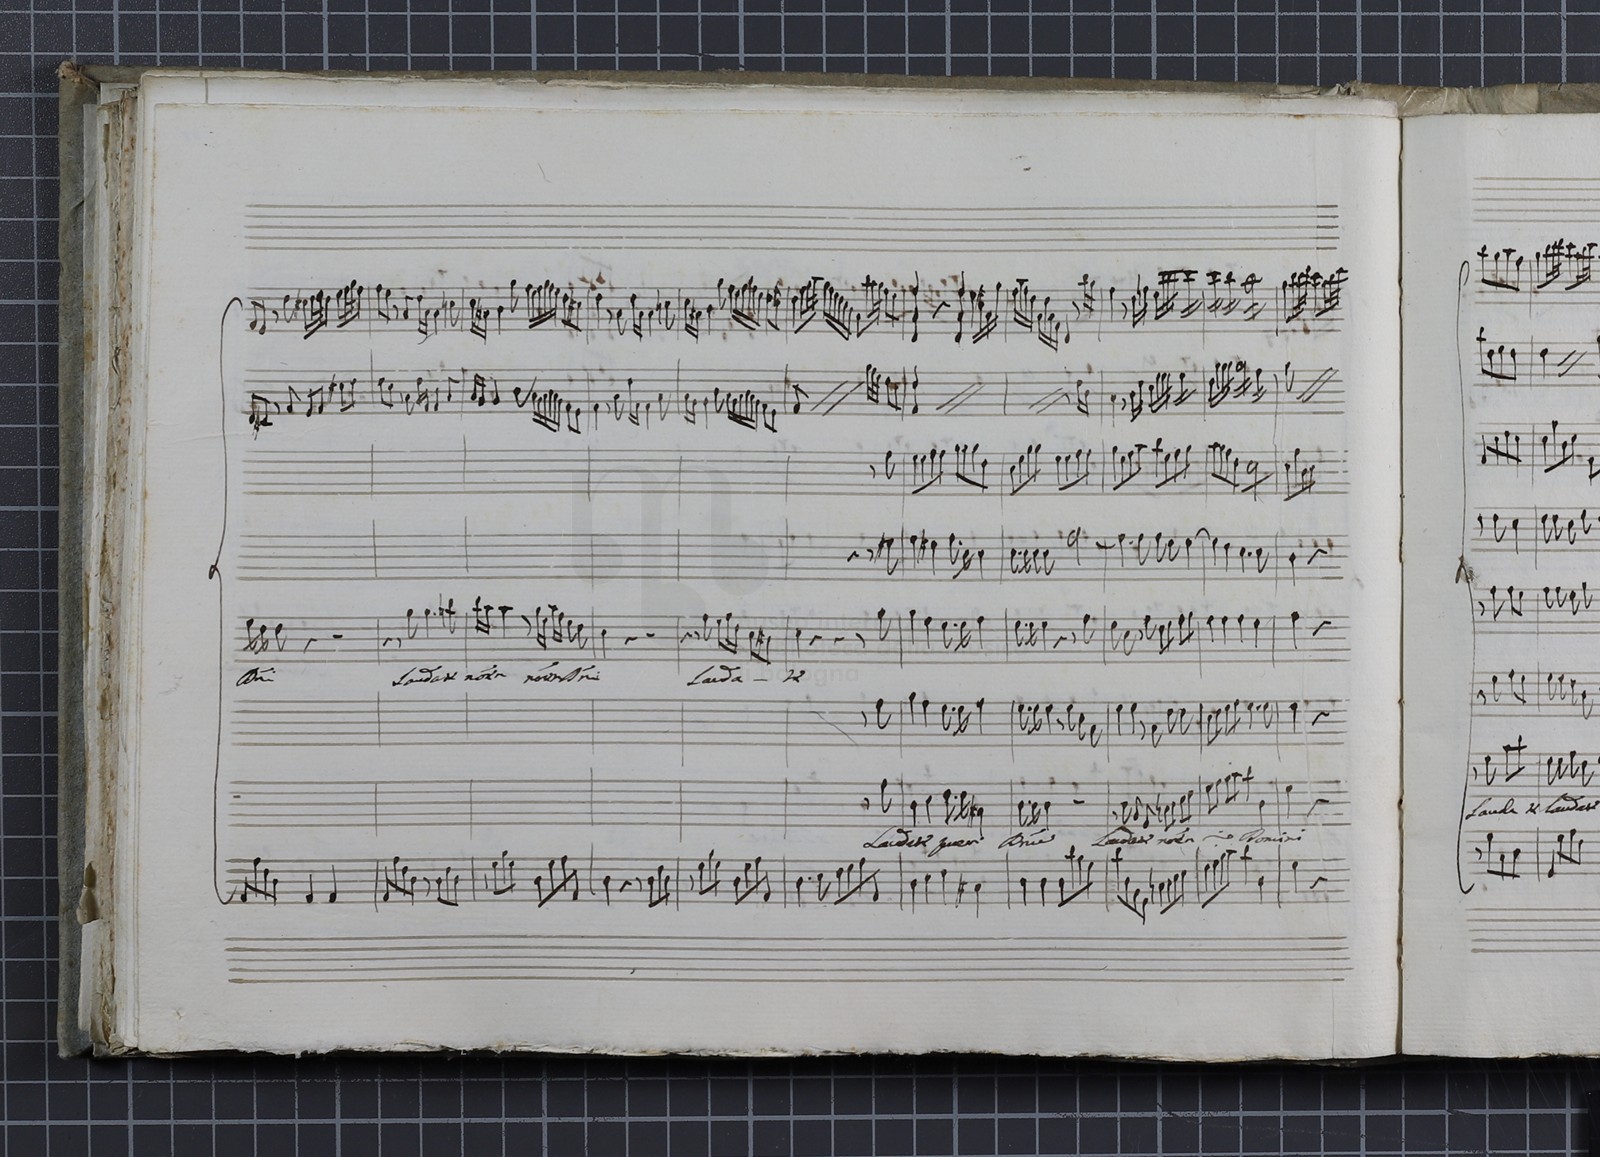 Dni
Laudate nom̃ nom̃ Dni
Lauda - te
Laudate pueri Dnũ Laudate nom̃ Domini
Lauda te Laudate